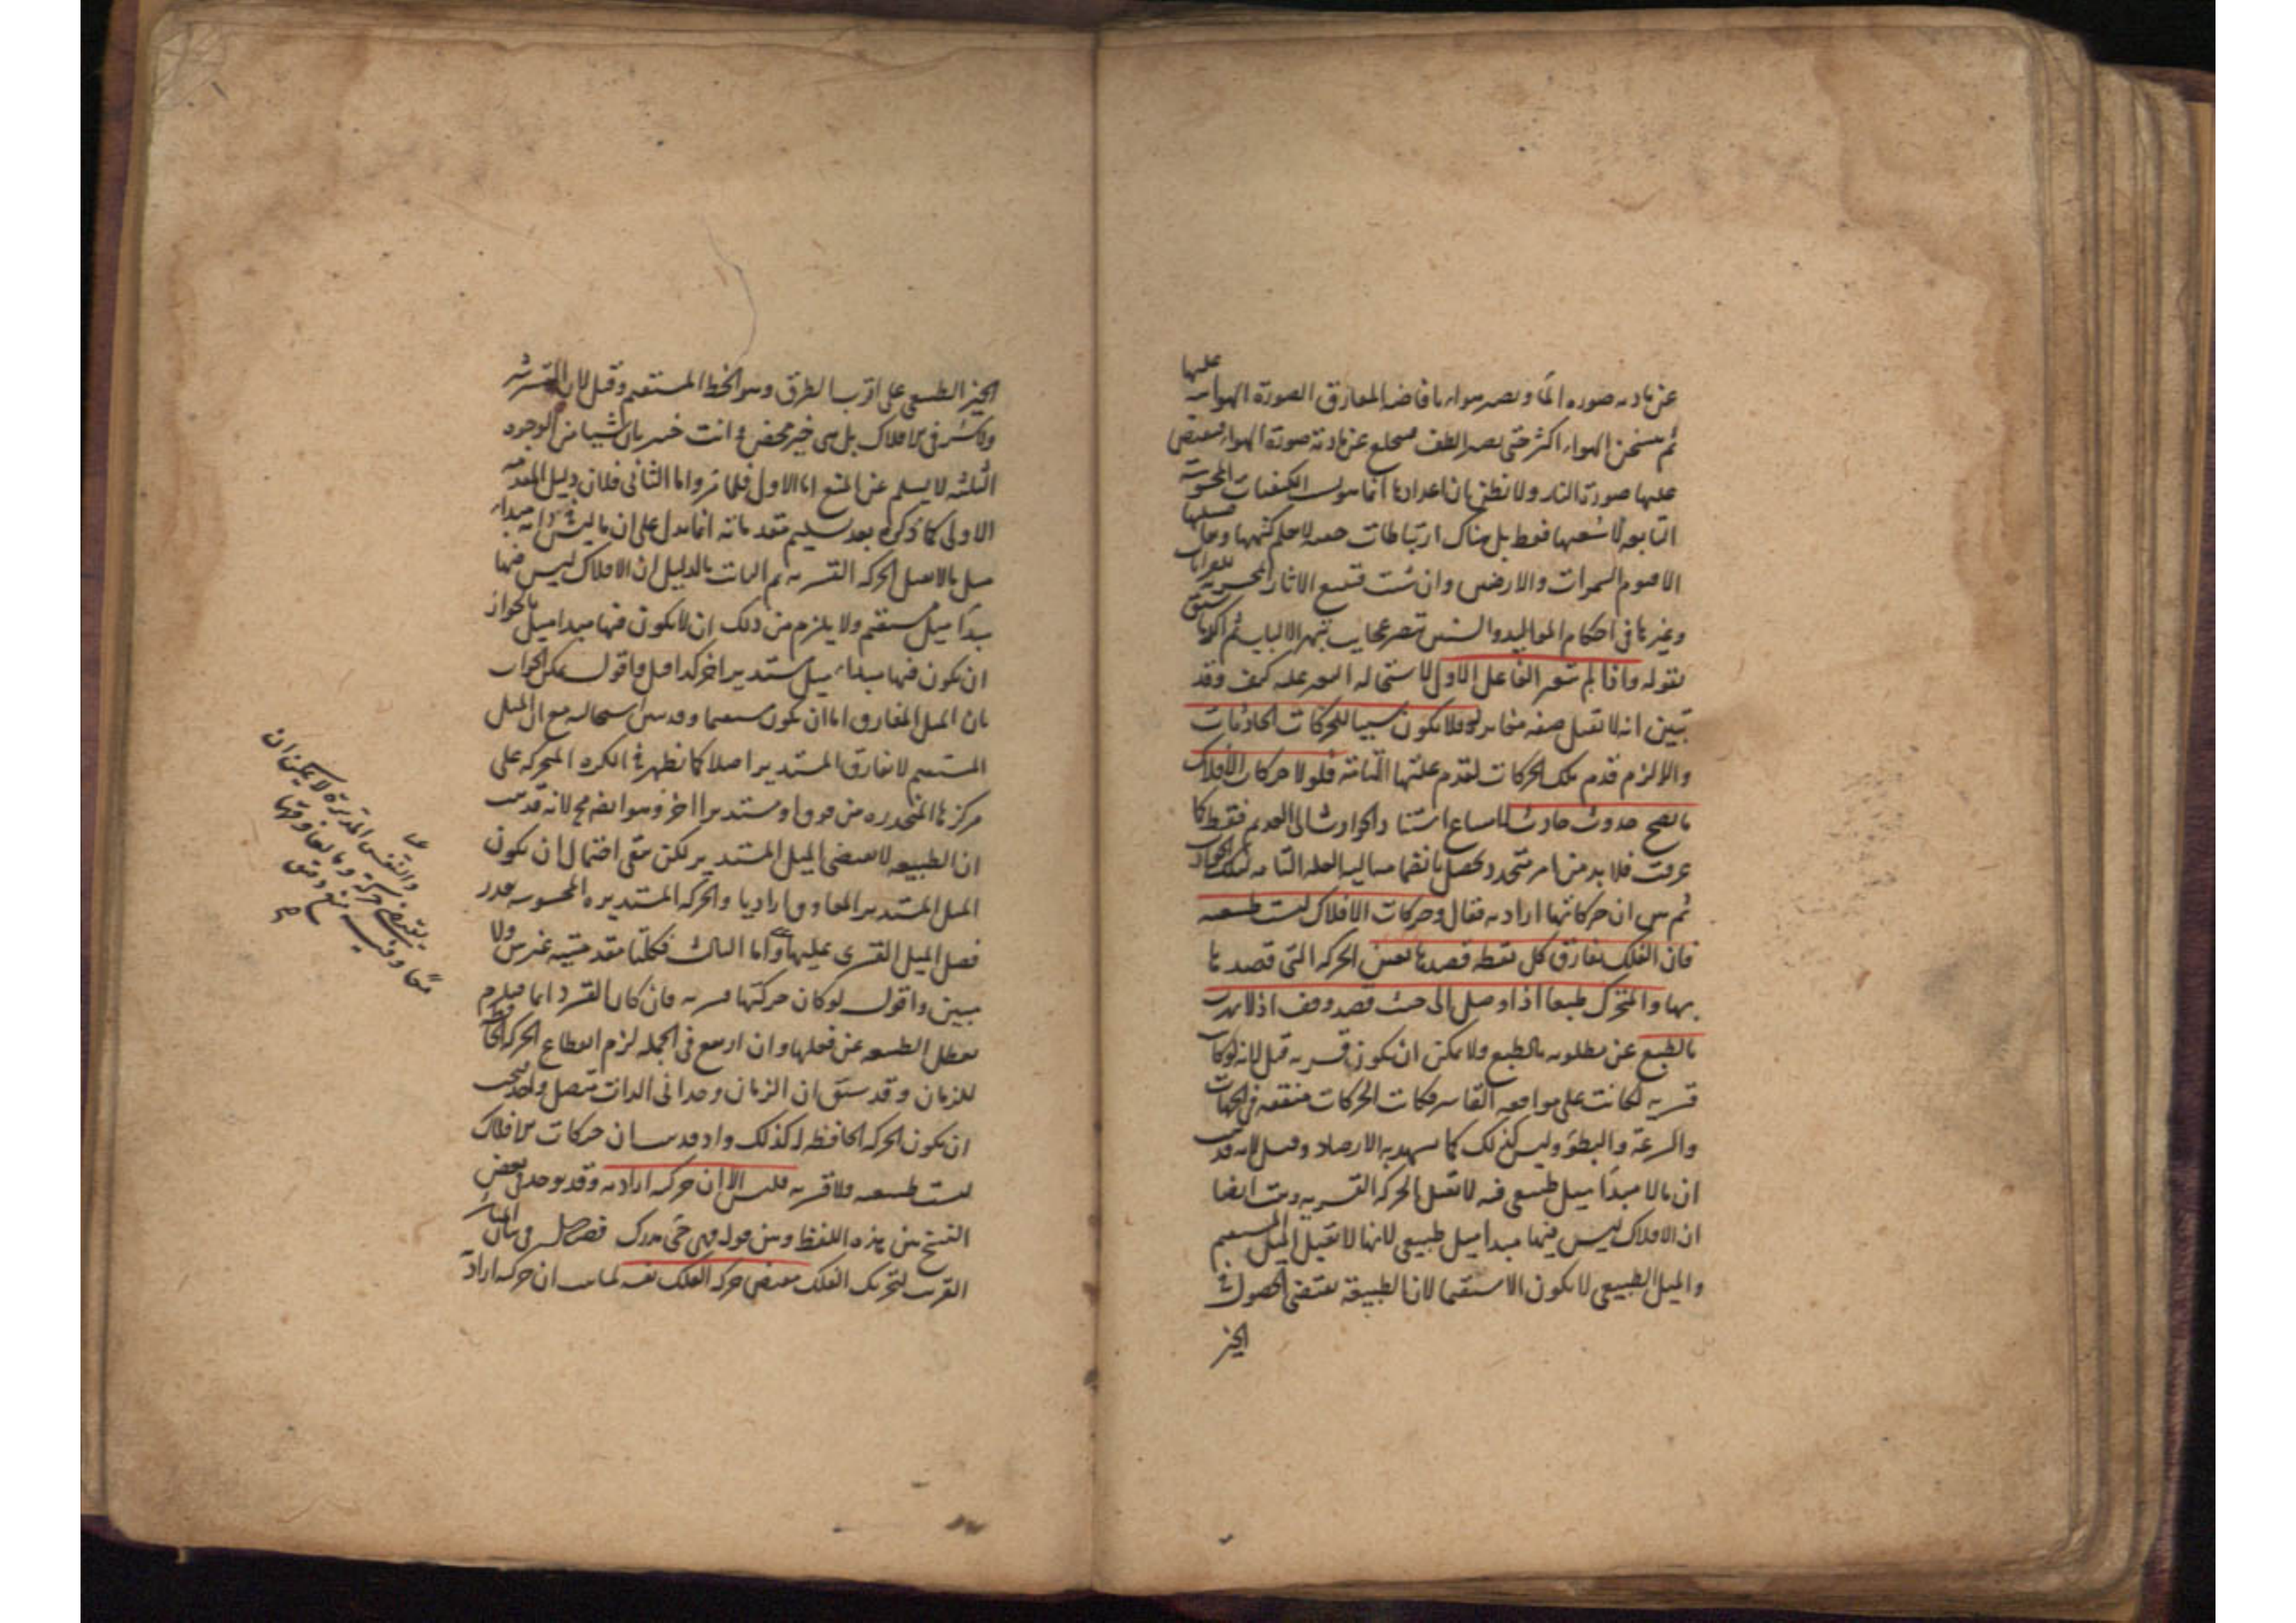 عن مادته صورة الماء ويصير هواء بافاضة المفارق الصورة الهوائية عليها
ثم يسخن الهواء اكثر حتى يصير الطف فيخلع عن مادته صورة الهواء فيفيض
عليها صورة النار ولا تظن بان اعدادها انما هو بسبب الكيفيات المحسوسة
التابعة لاشعتها فقط بل هناك ارتباطات خفية لا يعلم كنهها
الا قيوم السموات والارض وان شئت فتتبع الاثار
وغيرها في احكام المواليد والسنين تبصر عجايب تبهر الالباب ثم اكد ما سبق
بقوله واذا لم يتغير الفاعل الاول لاستحالة التغير عليه كيف وقد
تبين انه لا تقبل صفة مغايرة له فلا يكون سببا للحركات الحادثات
والا لزم قدم تلك الحركات لقدم علتها التامة فلولا حركات الافلاك
ما يصح حدوث حادث لامتناع استناد الحوادث الى القديم فقط كما
عرفت فلا بد من امر متجدد يحصل بانضمامه اليه العلة التامة لتلك الحوادث
ثم بين ان حركاتها ارادية فقال وحركات الافلاك ليست طبيعية
فان الفلك يفارق كل نقطة قصدها بعين الحركة التي قصدها
بها والمتحرك طبعا اذا وصل الى حيث قصد وقف اذ لا يهرب
بالطبع عن مطلوبه بالطبع ولا يمكن ان يكون قسرية قيل لانه لو كانت
قسرية لكانت على موافقة القاسر فكانت الحركات متفقة في الجهات
والسرعة والبطؤ وليس كذلك كما يشهد به الارصاد وقيل لانه قد ثبت
ان ما لا مبدأ ميل طبيعي فيه لا تقبل الحركة القسرية وثبت ايضا
ان الافلاك ليس فيها مبدا ميل طبيعي لانها لا تقبل الميل المستقيم
والميل الطبيعي لا يكون الا مستقيما لان الطبيعة تقتضي الحصول في
الحيز
الحيز الطبيعي على اقرب الطرق وهو الخط المستقيم وقيل لان القسر شر
ولا شر في الافلاك بل هي خير محض وانت خبير بان شيئا من الوجوه
الثلثة لا يسلم عن المنع اما الاول فلما مر واما الثاني فلان دليل المقدمة
الاولى كما ذكره بعد تسليم مقدماته انما يدل على ان ما ليس فيه مبداء
ميل ما لا يقبل الحركة القسرية ثم الثابت بالدليل ان الافلاك ليس فيها
مبدأ ميل مستقيم ولا يلزم من ذلك ان لا يكون فيها مبدا ميل لجواز
ان يكون فيها مبداء ميل مستدير اخر كذا قيل واقول يمكن الجواب
بان الميل المفارق اما ان يكون مستقيما وقد بين استحالته مع ان الميل
المستقيم لا يفارق المستدير اصلا كما يظهر في الكرة المتحركة على
مركزها المنحدرة من فوق او مستديرا اخر وهو ايضا مح لانه قد بين
ان الطبيعة لا تقتضي الميل المستدير لكن بقي احتمال ان يكون
الميل المستدير المعاوق اراديا والحركة المستديرة المحسوسة بقدر
فضل الميل القسري عليها واما الثالث فكلتا مقدمتيه غير بين ولا
مبين واقول لو كان حركتها قسرية فان كان القسر دايما فيلزم
تعطل الطبيعة عن فعلها وان ارتفع في الجملة لزم انقطاع الحركة الحافظة
للزمان وقد سبق ان الزمان وحداني الذات متصل واحد فيجب
ان يكون الحركة الحافظة له كذلك واذ قد بين ان حركات الافلاك
ليست طبيعية ولا قسرية فليس الا ان حركته ارادية وقد يوجد في بعض
النسخ بين هذه اللفظ وبين قوله فهي حي مدرك فصل في بيان المباشر
القريب لتحريك الفلك مقتضى حركة الفلك نفسه لما بين ان حركته ارادية
والنفس المديرة لا يمكن ان
يقتضي حركة وما يعاوقها
معا وفيه منع دقيق